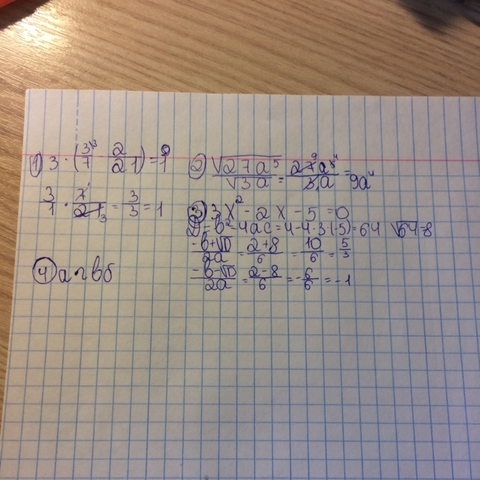 1) 3 · (3/7 2/21) = 1
3/1 · 7/21 = 3/3 = 1
4) а г в б
2) √27a⁵ / √3a = 27a⁵ / 3a = 9a⁴
3) 3x² - 2x - 5 = 0
D = b² - 4ac = 4 - 4·3(-5) = 64 √64=8
-b+√D / 2a = 2+8 / 6 = 10/6 = 5/3
-b-√D / 2a = 2-8 / 6 = -6/6 = -1